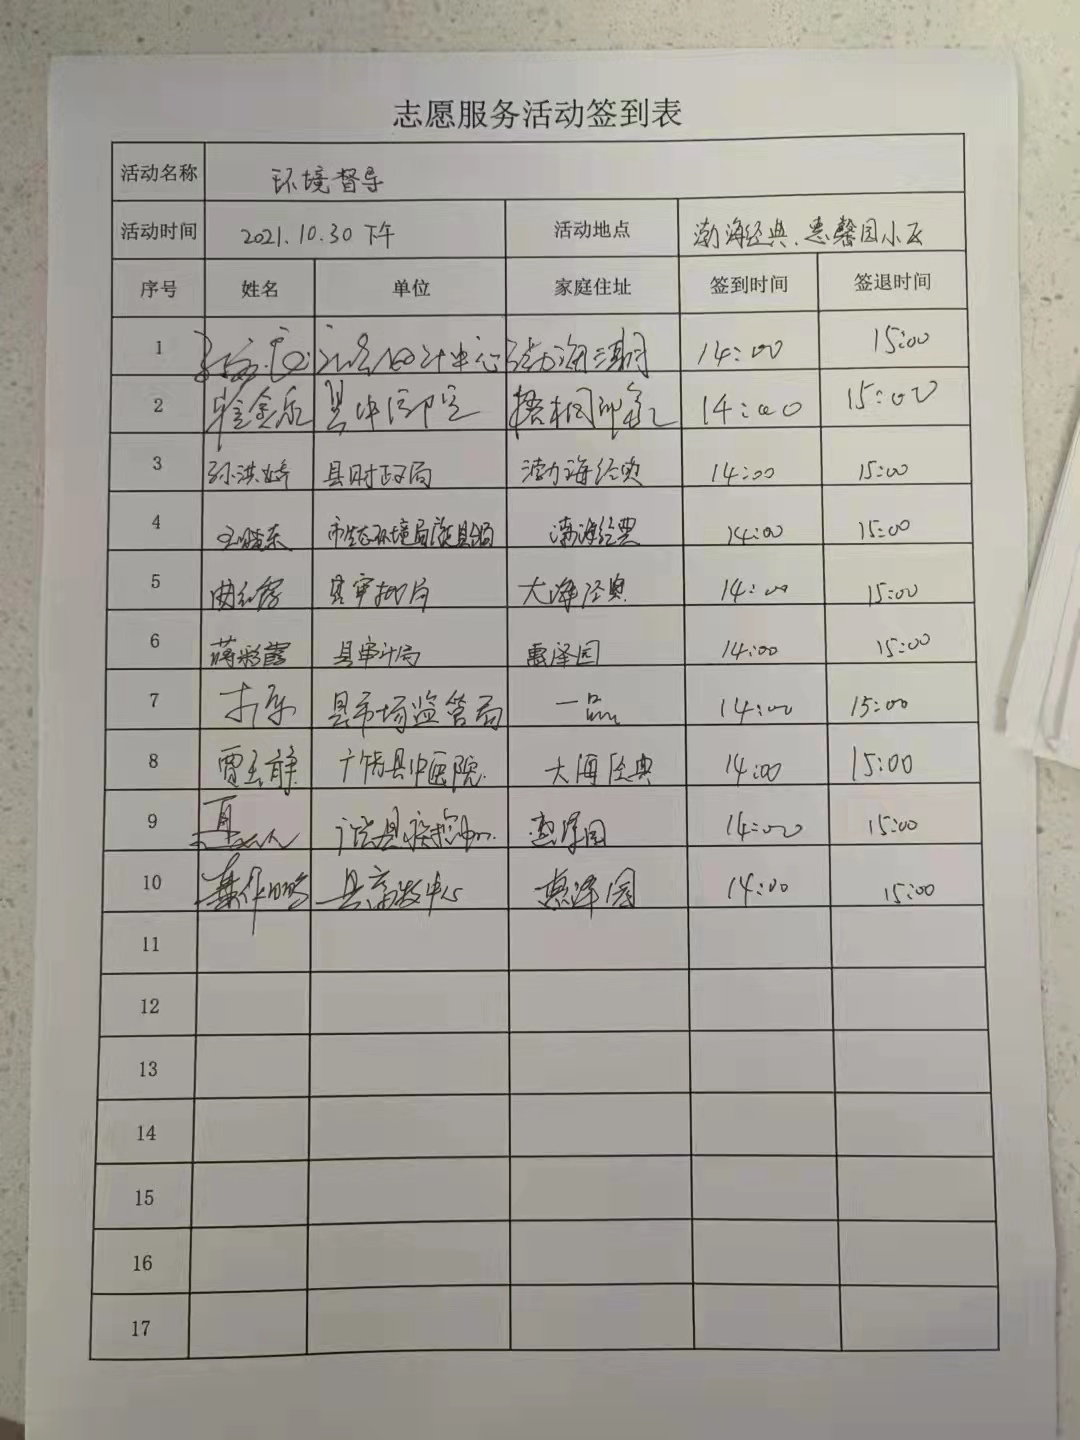 志愿服务活动签到表
活动名称 环境督导
活动时间 2021.10.30下午 活动地点 渤海经典、惠馨园小区
序号 姓名 单位 家庭住址 签到时间 签退时间
1 14:00 15:00
2 14:00 15:00
3 县财政局 渤海经典 14:00 15:00
4 王晓东 市生态环境局 渤海经典 14:00 15:00
5 大海经典 14:00 15:00
6 蒋彩霞 县审计局 惠泽园 14:00 15:00
7 县市场监管局 一品 14:00 15:00
8 贾玉静 广饶县中医院 大海经典 14:00 15:00
9 广饶县疾控中心 惠泽园 14:00 15:00
10 惠泽园 14:00 15:00
11
12
13
14
15
16
17